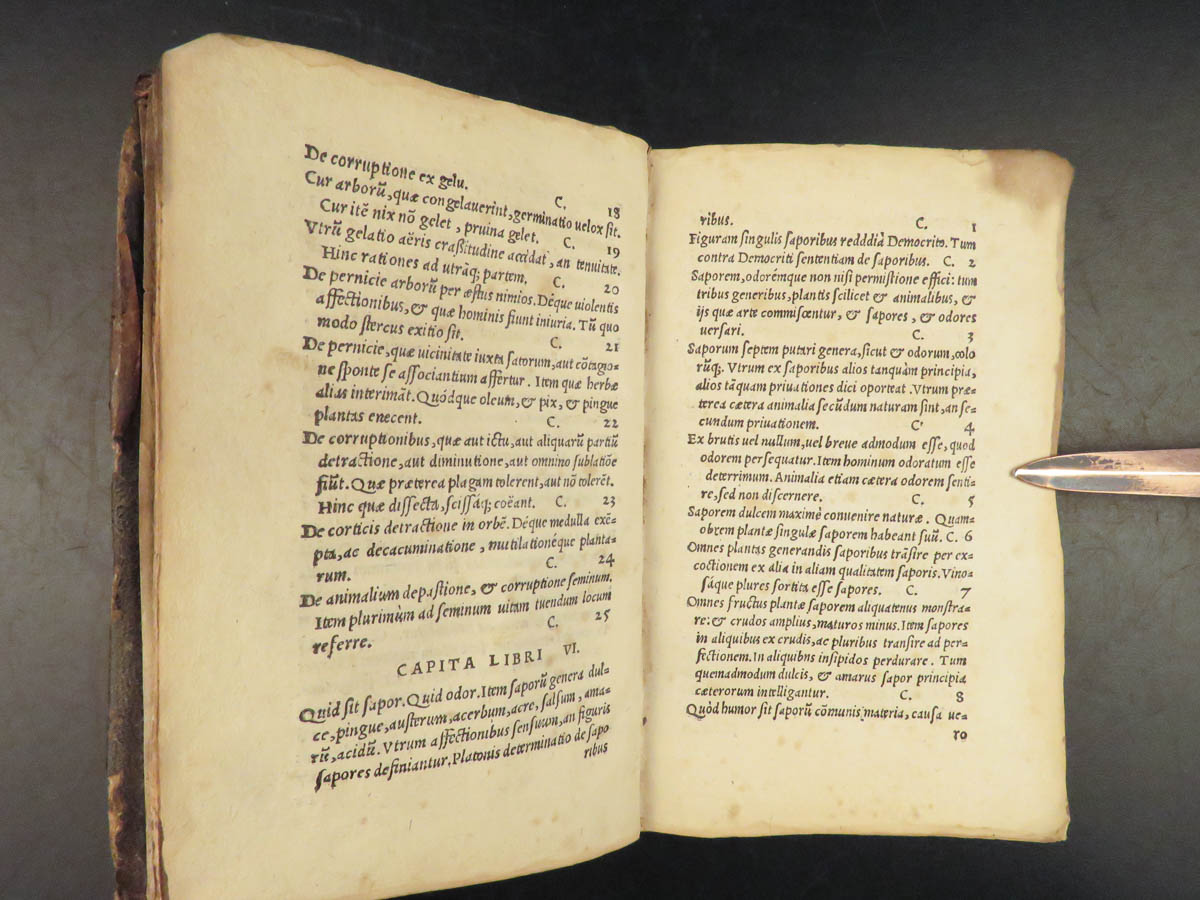 De corruptione ex gelu.
C. 18
Cur arborũ, quæ congelauerint, germinatio uelox sit.
Cur itẽ nix nõ gelet, pruina gelet. C. 19
Vtrũ gelatio aëris craßitudine accidat, an tenuitate.
Hinc rationes ad utrãq; partem. C. 20
De pernicie arborũ per æstus nimios. Déque uiolentis
affectionibus, & quæ hominis fiunt iniuria. Tũ quo
modo stercus exitio sit. C. 21
De pernicie, quæ uicinitate iuxta satorum, aut cõtagio-
ne sponte se associantium affertur. Item quæ herbæ
alias interimãt. Quódque oleum, & pix, & pingue
plantas enecent. C. 22
De corruptionibus, quæ aut ictu, aut aliquarũ partiũ
detractione, aut diminutione, aut omnino sublatiõe
fiũt. Quæ præterea plagam tolerent, aut nõ tolerẽt.
Hinc quæ dissecta, scissáq; coëant. C. 23
De corticis detractione in orbẽ. Déque medulla exẽ-
pta, ac decacuminatione, mutilationéque planta-
rum. C. 24
De animalium depastione, & corruptione seminum.
Item plurimùm ad seminum uitam tuendum locum
referre. C. 25
CAPITA LIBRI VI.
Quid sit sapor. Quid odor. Item saporũ genera dul-
ce, pingue, austerum, acerbum, acre, salsum, ama-
rũ, acidũ. Vtrum affectionibus sensuum, an figuris
sapores definiantur. Platonis determinatio de sapo
ribus
ribus. C. 1
Figuram singulis saporibus redddiã Democrito. Tum
contra Democriti sententiam de saporibus. C. 2
Saporem, odorémque non nisi permistione effici: tum
tribus generibus, plantis scilicet & animalibus, &
ijs quæ arte commiscentur, & sapores, & odores
uersari. C. 3
Saporum septem putari genera, sicut & odorum, colo
rũq;. Vtrum ex saporibus alios tanquàm principia,
alios tãquam priuationes dici oporteat. Vtrum præ-
terea cætera animalia secũdum naturam sint, an se-
cundum priuationem. C' 4
Ex brutis uel nullum, uel breue admodum esse, quod
odorem persequatur. Item hominum odoratum esse
deterrimum. Animalia etiam cætera odorem senti-
re, sed non discernere. C. 5
Saporem dulcem maximè conuenire naturæ. Quam-
obrem plantæ singulæ saporem habeant suũ. C. 6
Omnes plantas generandis saporibus trãsire per ex-
coctionem ex alia in aliam qualitatem saporis. Vino-
sáque plures sortita esse sapores. C. 7
Omnes fructus plantæ saporem aliquatenus monstra-
re: & crudos amplius, maturos minus. Item sapores
in aliquibus ex crudis, ac pluribus transire ad per-
fectionem. In aliquibns insipidos perdurare. Tum
quemadmodum dulcis, & amarus sapor principia
cæterorum intelligantur. C. 8
Quòd humor sit saporũ cõmunis materia, causa ue-
ro